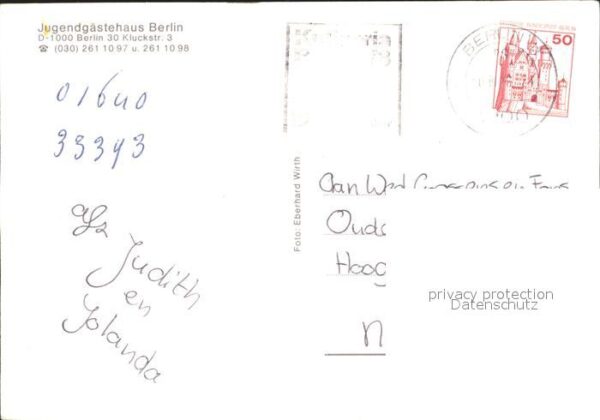 Jugendgästehaus Berlin
D-1000 Berlin 30 Kluckstr. 3
☎ (030) 261 10 97 u. 261 10 98
01640
33343
afz
Judith
en
Jolanda
Foto: Eberhard Wirth
BERLIN
50
Aan
Ouds
Hoog
N
privacy protection
Datenschutz